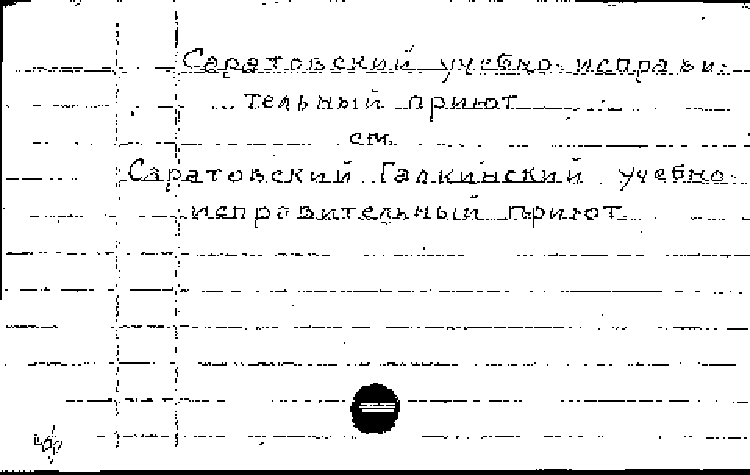 Саратовский учебно-исправи-
тельный приют
см.
Саратовский Галкинский учебно-
исправительный приют